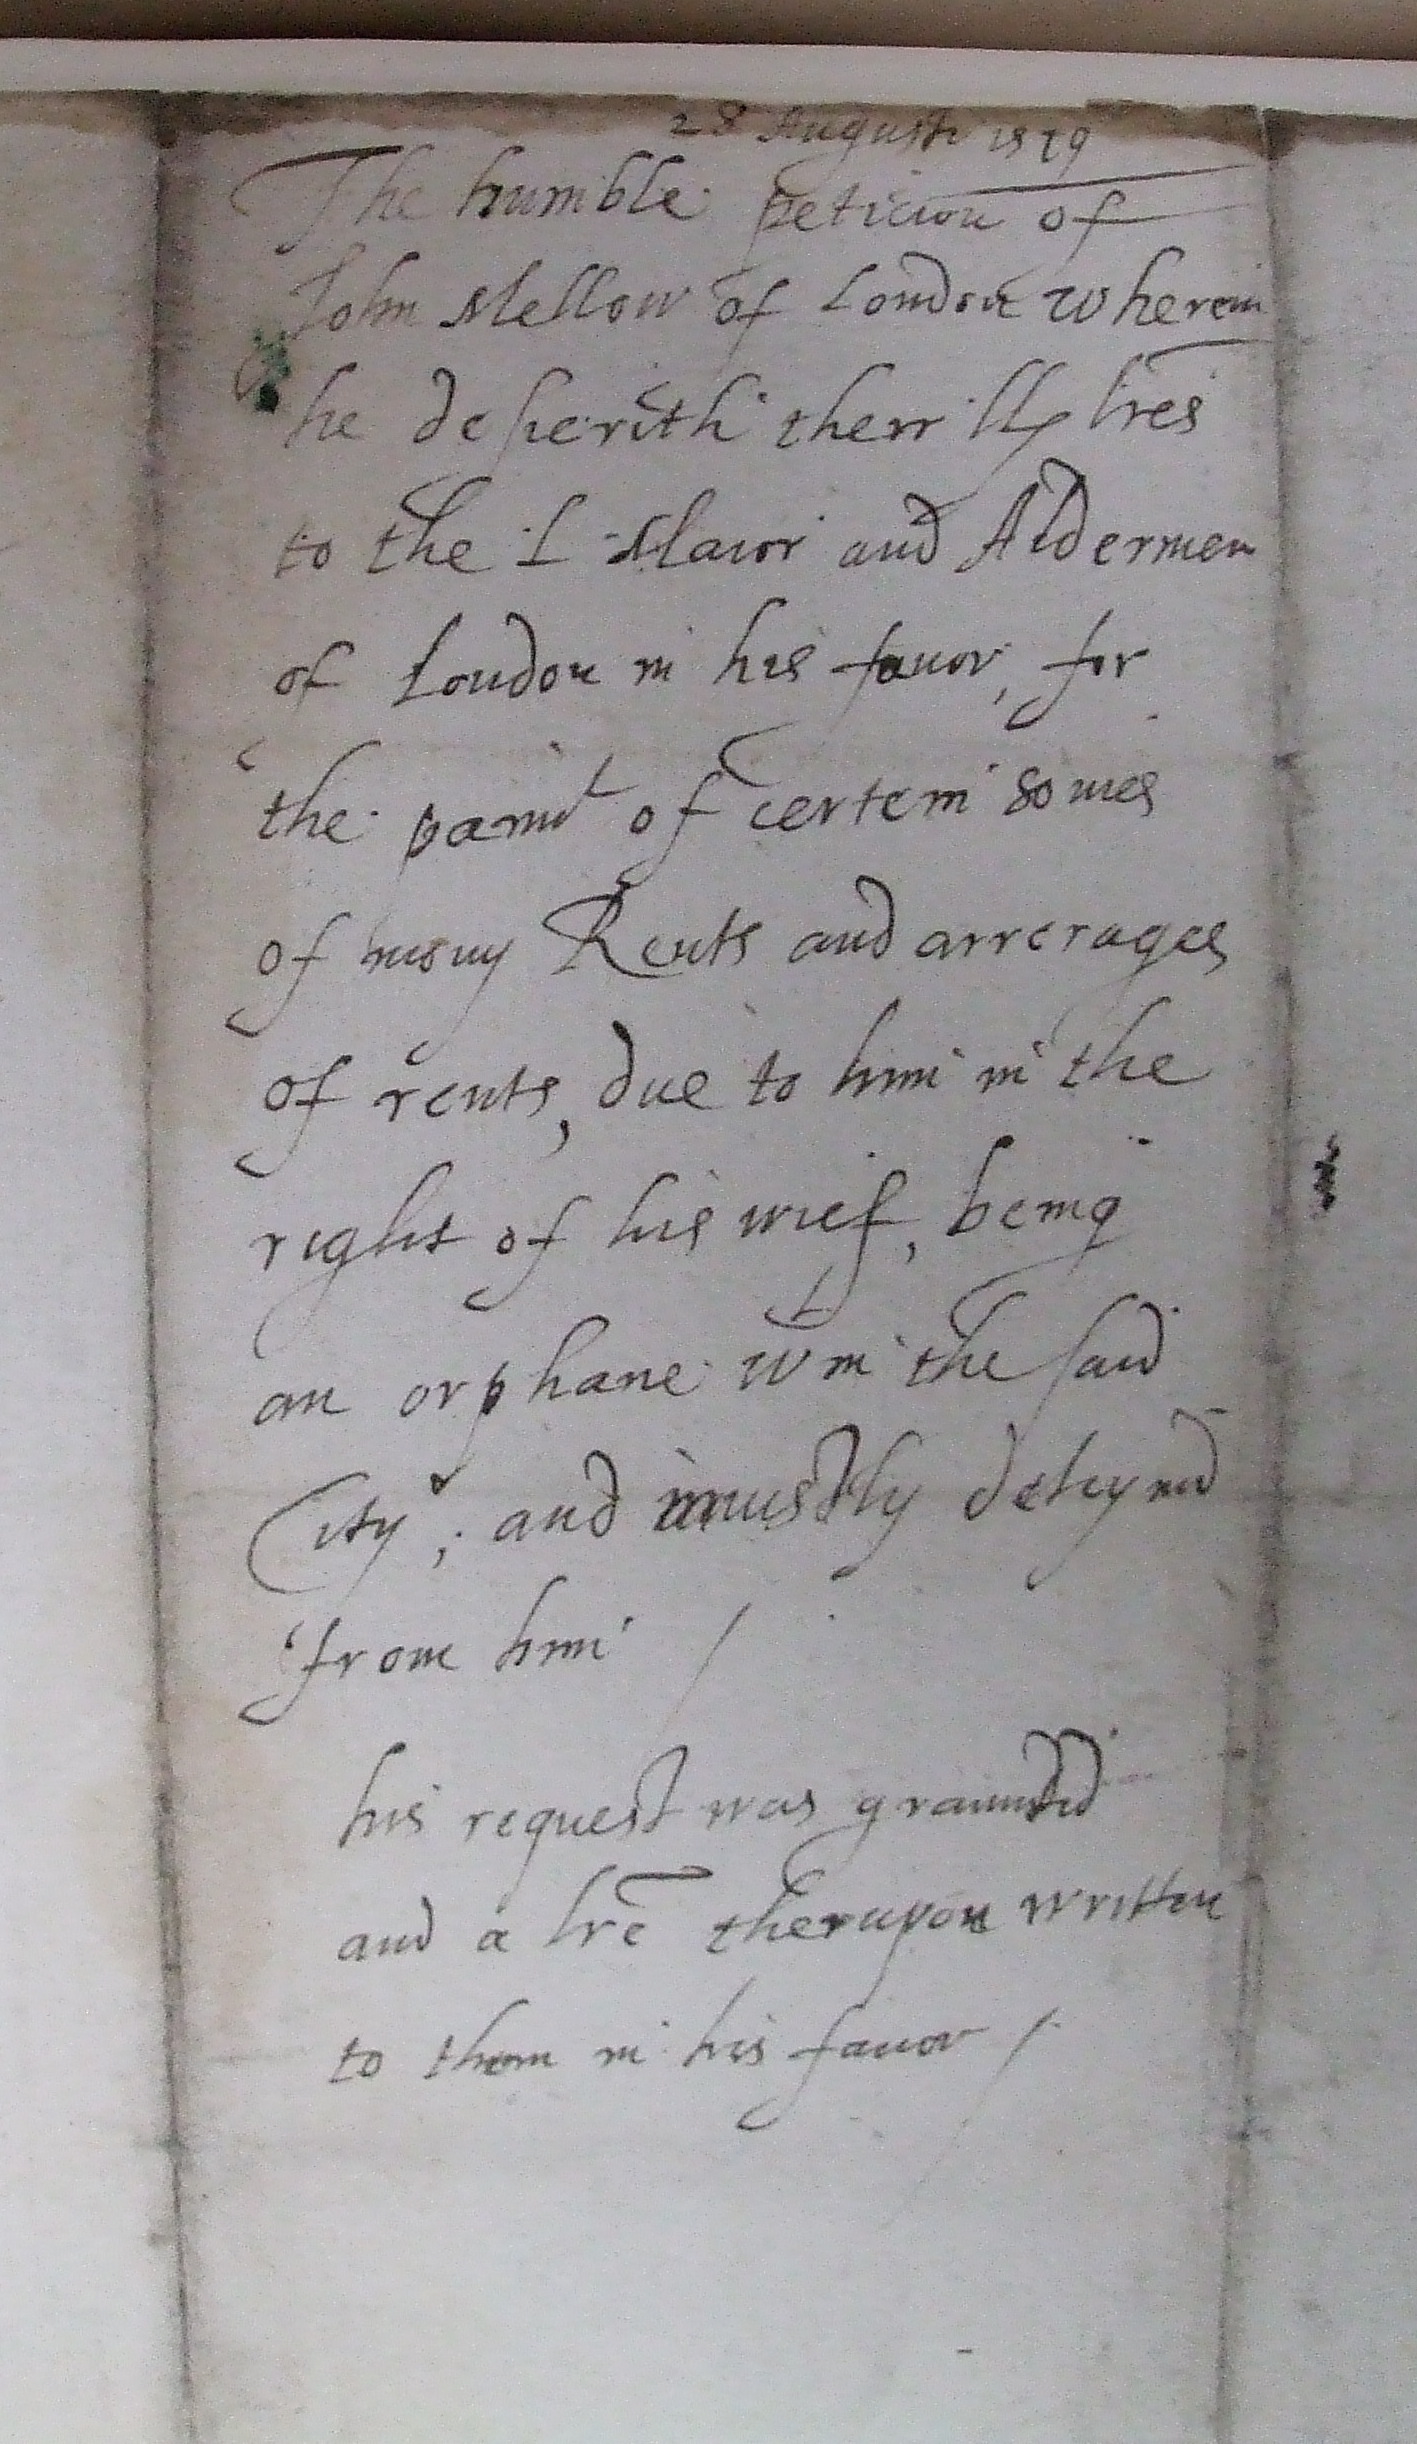 28 Augusti 1579
The humble peticion of
John Mellow of London wherein
he desierith therr ll. lrẽs
to the L Maior and Aldermen
of London in his fauor, for
the paimt of certein somes
of mony Rents and arrerages
of rents, due to him in the
right of his wief, being
an orphane wt in the said
City, and iniustly deteyned
from him /
his request was graunted
and a lrẽ therupon written
to them in his fauor /